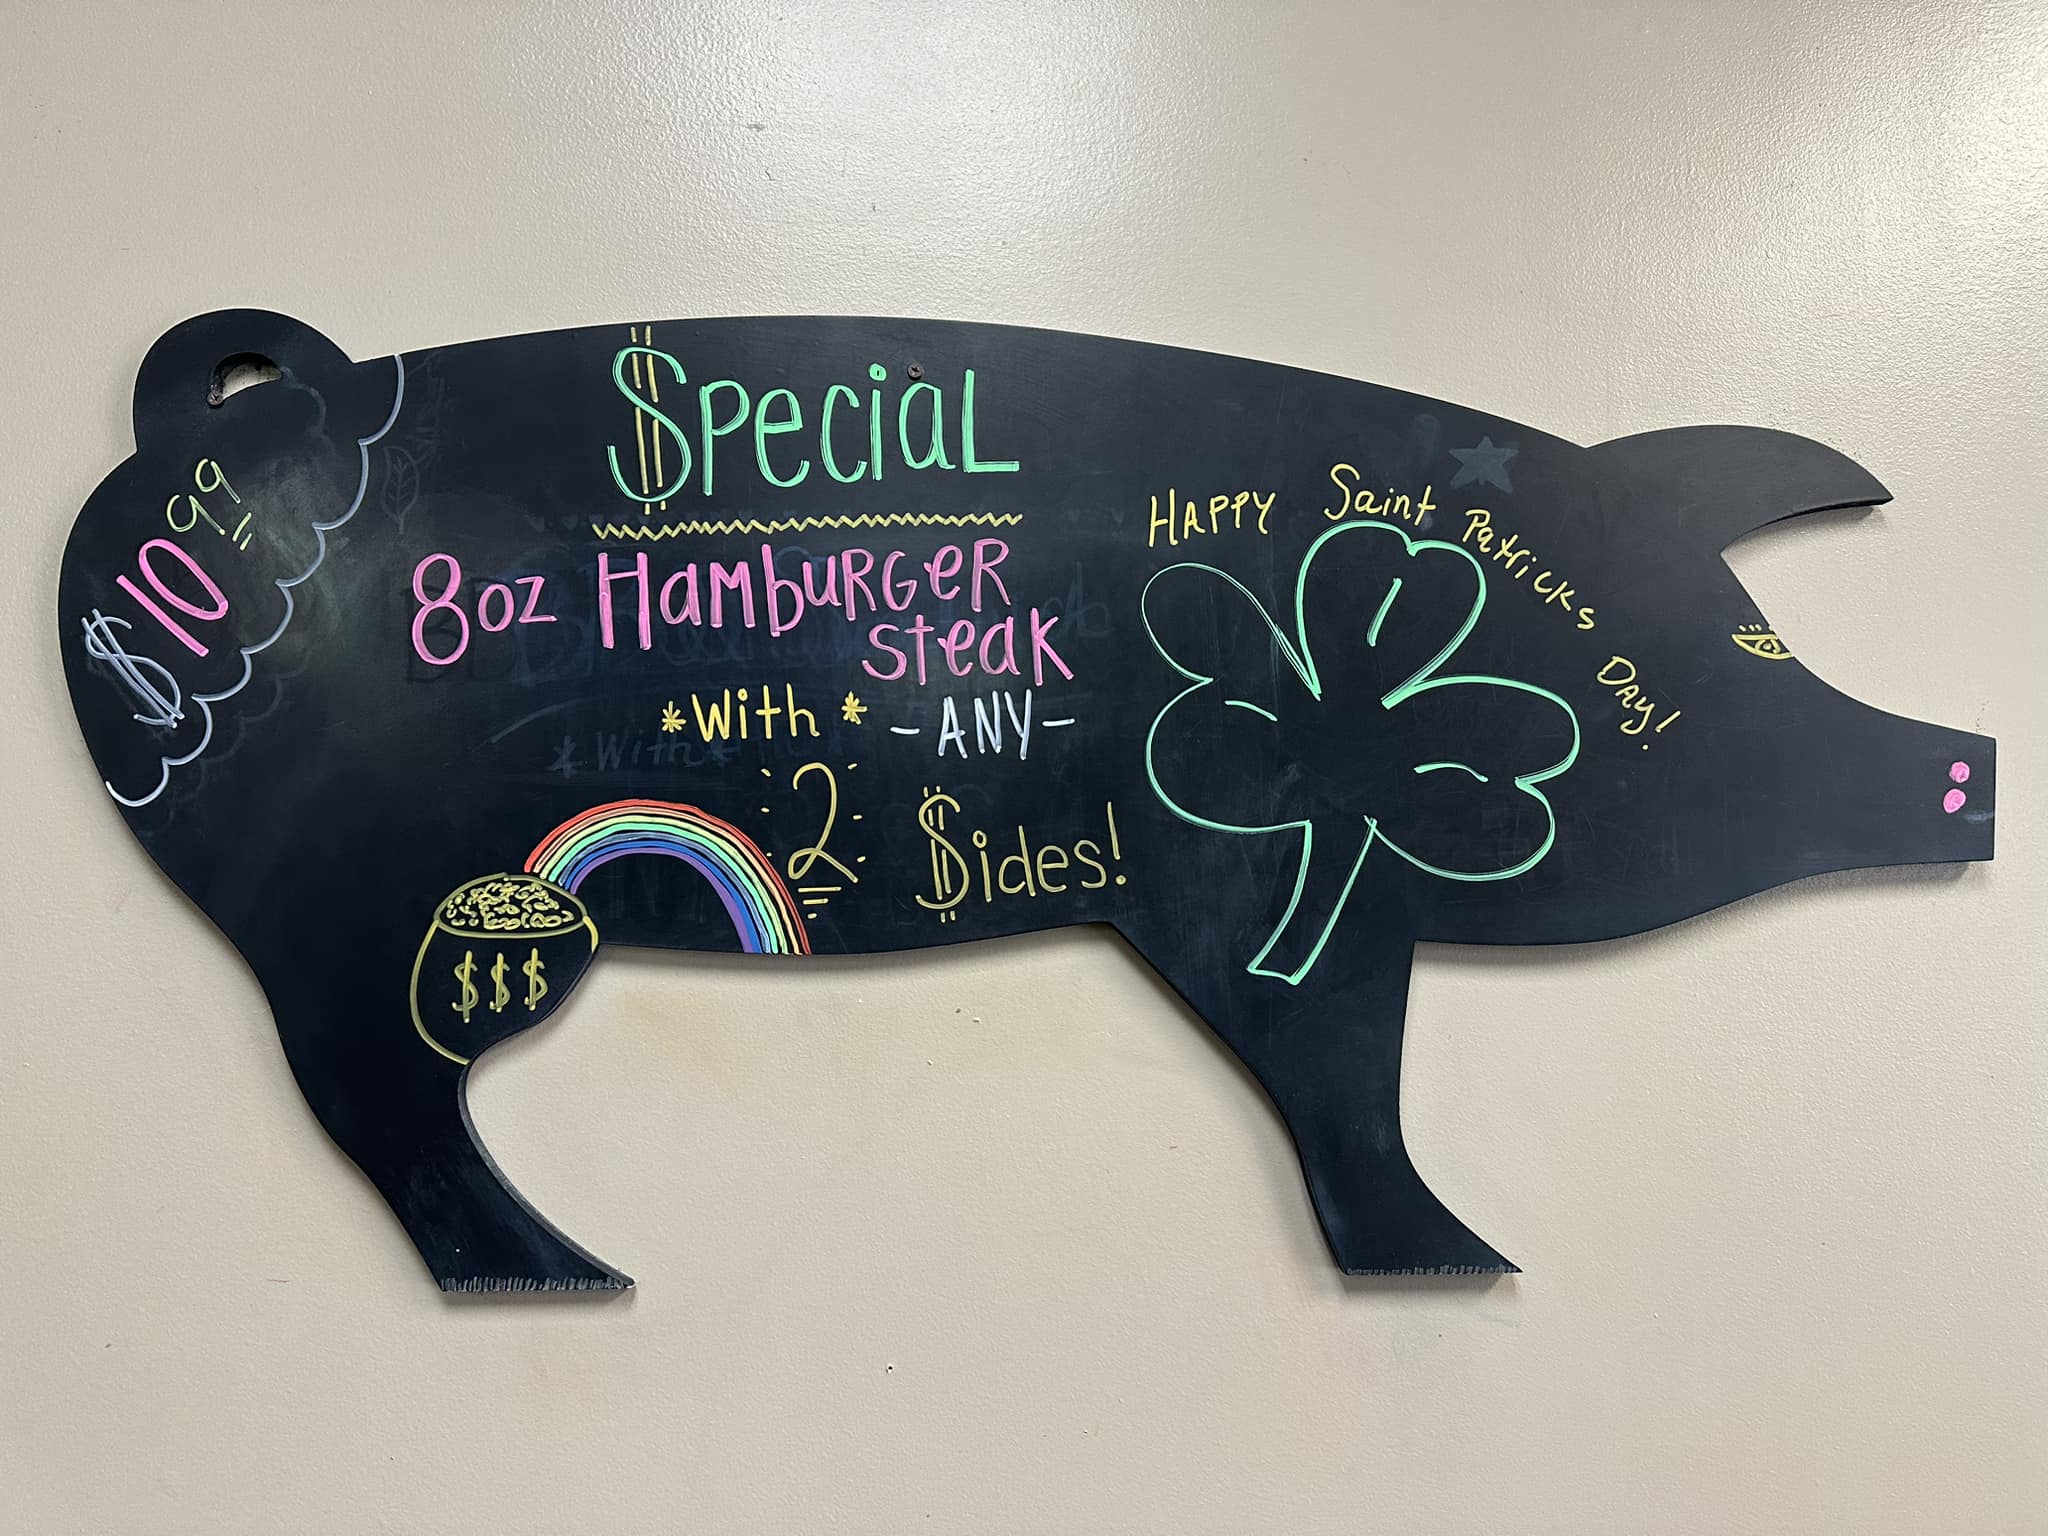 $10.99
$pecial
8oz Hamburger
steak
*With* -ANY-
2 $ides!
$$$
HAPPY Saint Patricks Day!
*With*